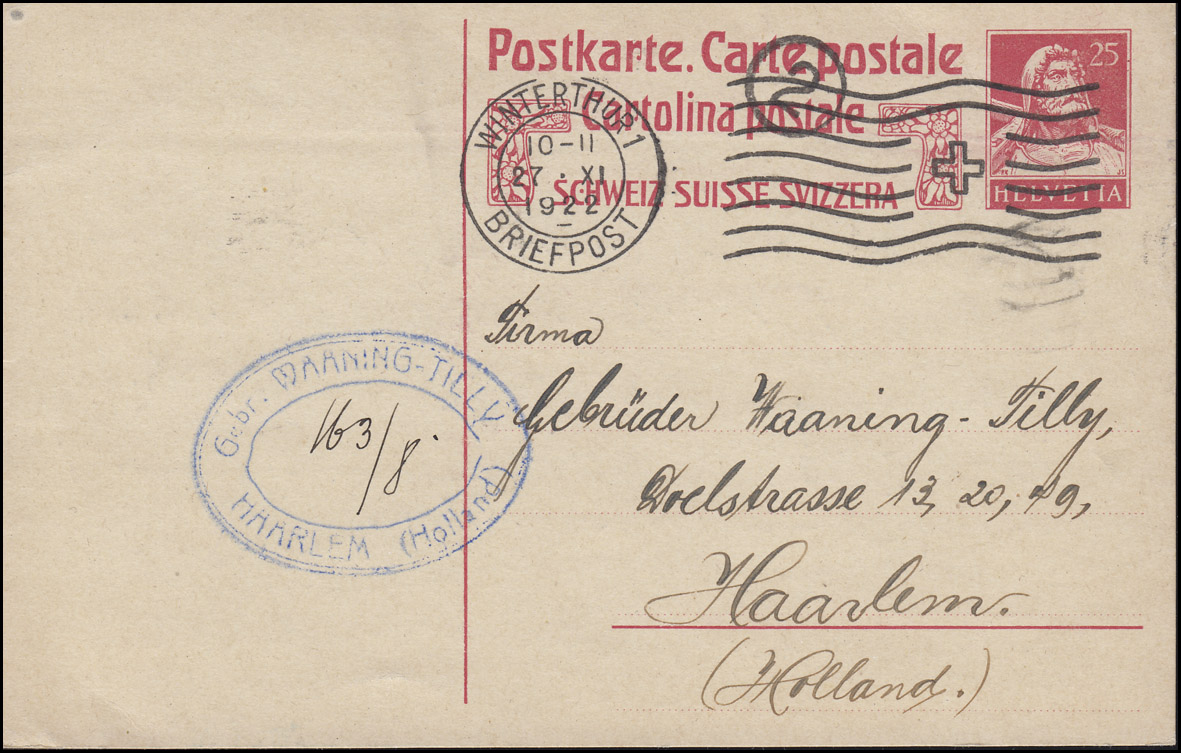 Postkarte. Carte postale
Cartolina postale
SCHWEIZ SUISSE SVIZZERA
25
HELVETIA
WINTERTHUR 1
10-11
27 · XI
1922
BRIEFPOST
2
Firma
Gebrüder Waaning-Tilly,
Doelstrasse 13, 20, 49,
Haarlem.
(Holland.)
Gebr. WAANING-TILLY
163/8.
HAARLEM (Holland)